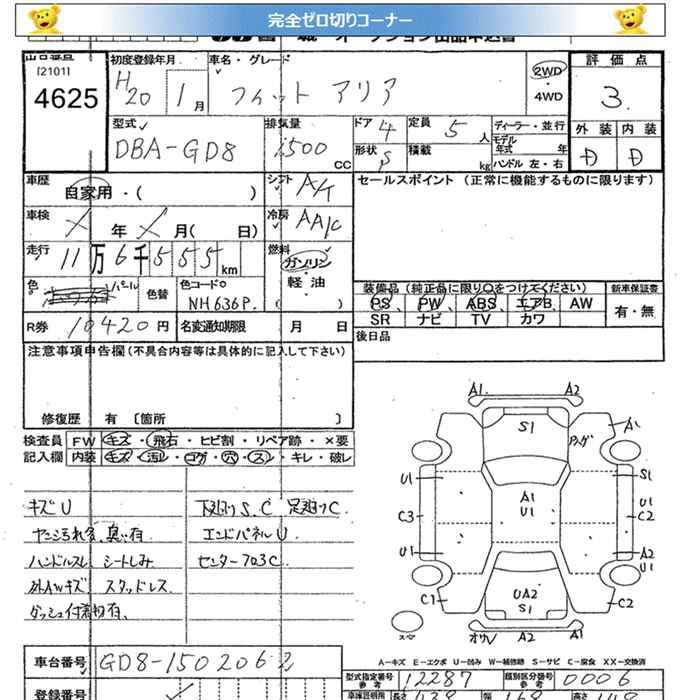 完全ゼロ切りコーナー
オークション出品申込書
出品番号 初度登録年月 車名・グレード 評価点
[2101]
4625 H20 1月 フィット アリア 2WD ・ 4WD 3.
外装 内装
D D
型式 排気量 ドア 4 定員 5人 ディーラー・並行
モデル年式 年
DBA-GD8 1500 CC 形状 S 積載 kg ハンドル 左・右
車歴 自家用・( ) シフト AT セールスポイント (正常に機能するものに限ります)
車検 X 年 X 月( 日) 冷房 AAC
走行 11万6千555km 燃料 ガソリン
軽油
( )
色 パール 色替 色コードNo NH636P. 装備品 (純正品に限り○をつけてください) 新車保証書
PS PW ABS エアB AW 有・無
SR ナビ TV カワ
R券 10420円 名変通知期限 月 日
後日品
注意事項申告欄(不具合内容等は具体的に記入して下さい)
修復歴 有 〔箇所 〕
検査員 FW キズ・飛石・ヒビ割・リペア跡・×要
記入欄 内装 キズ・汚レ・コゲ・穴・スレ・キレ・破レ
キズU 下廻りS.C 足廻りC
ヤニ汚れ多、臭い有 エンドパネルU
ハンドルスレ シートしみ センターフロアC
外AWキズ スタッドレス
ダッシュ付着物有.
A1 A2
S1 A
U1 S1
A1
U1
C3 U1
C2
U1 A2
U1
UA2
S1
C1 C2
スペア オサV A2 A1
A-キズ E-エクボ U-凹み W-補修跡 S-サビ C-腐食 XX-交換済
車台番号 GD8-1502062
型式指定番号 12287 類別区分番号 0006
登録番号